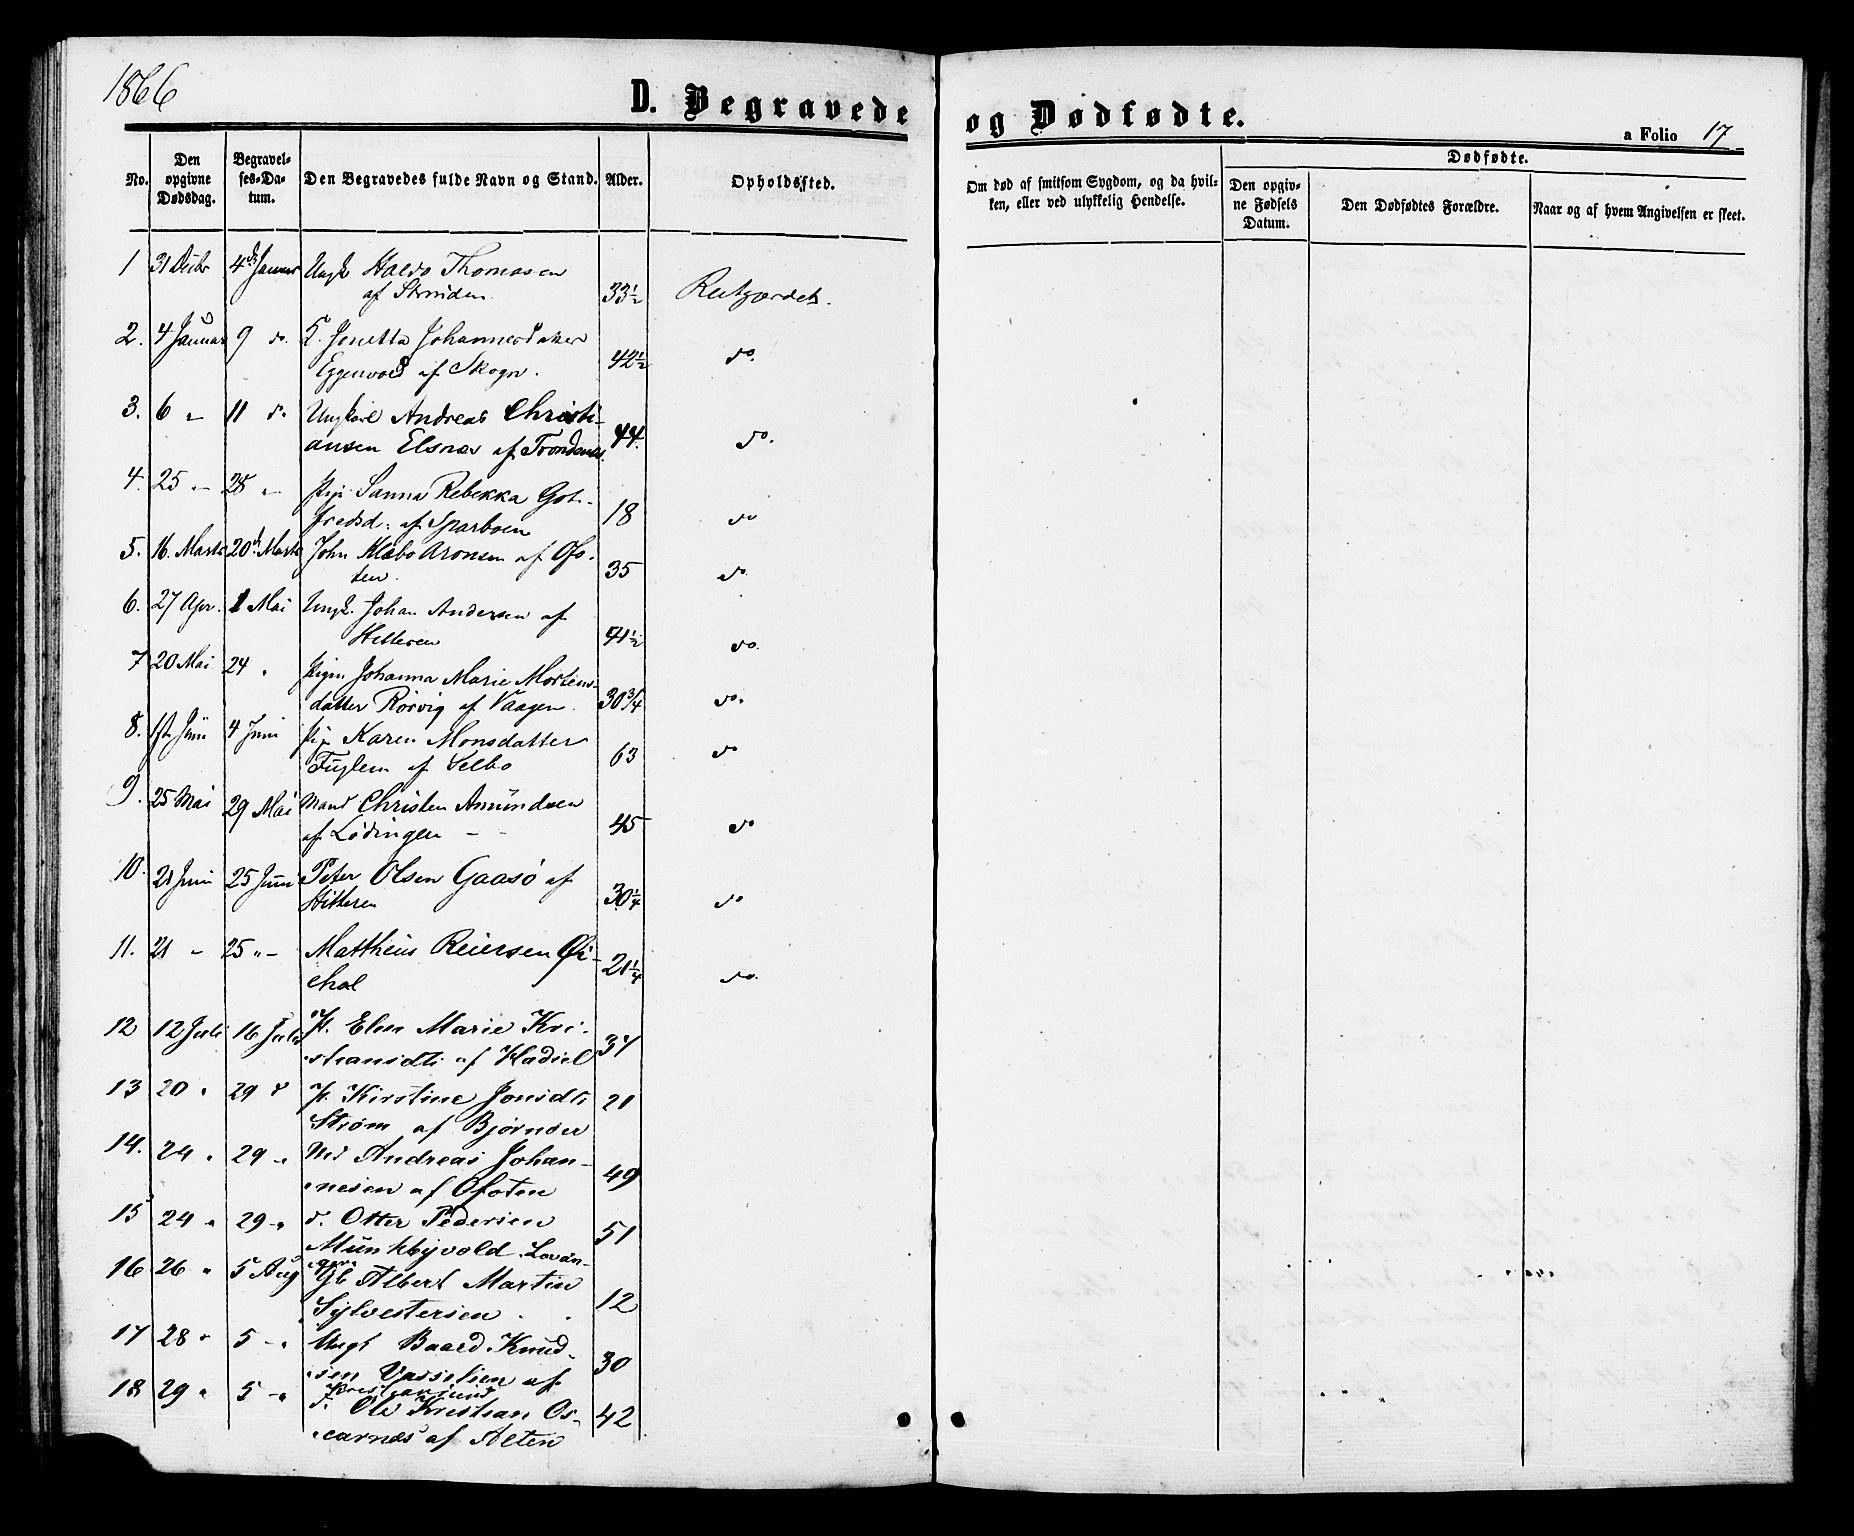 1866
D. Begravede og Dødfødte.
a Folio 17
No.
Den opgivne Dødsdag.
Begravelses-Datum.
Den Begravedes fulde Navn og Stand.
Alder.
Opholdssted.
Om død af smitsom Sygdom, og da hvilken, eller ved ulykkelig Hendelse.
Dødfødte.
Den opgivne Fødsels Datum.
Den Dødfødtes Forældre.
Naar og af hvem Angivelsen er skeet.
1 31 Decbr 4de Januar Ungk Haldo Thomasen
af Strinden 33½
2. 4 Januar 9 do. Jonetta Johannesdatter
Eggenvold af Skogn. 42½ do.
3. 6 " 11 do. Ungkarl Andreas Christi-
ansen Elsnæs af Trondenæs. 44. do.
4. 25 " 28 " Pige Sanna Rebekka Got-
fredsd: af Sparboen 18 do
5. 16. Marts 20de Marts John Klæbo Aronsen af Ofo-
ten. 35 do.
6. 27 Apr. 1 Mai Ungk. Johan Andersen af
Hitteren 41½ do.
7 20 Mai 24 " Pigen Johanna Marie Mortens-
datter Rørvig af Vaagen. 30¾ do.
8. 1ste Juni 4 Juni Pige Karen Monsdatter
Fuglem af Selbo 63 do
9. 25 Mai 29 Mai Mand Christen Amundsen
af Lødingen 45 do
10. 21 Juni 25 Juni Peter Olsen Gaasø af
Hitteren 30¼ do
11. 21 " 25 " Mattheus Reiersen Øi-
21¼ do.
12 12 Juli 16 Juli P. Elen Marie Kri-
stiansdtr af Hadsel 37
13 20 " 29 " P. Kirstine Jonsdtr
Strøm af Bjørnør 21
14. 24 " 29 " Md Andreas Johan-
nesen af Ofoten 49
15 24 " 29 " d. Otter Pedersen
Munkbyvold, Levan-
ger 51
16 26 " 5 Aug Gb Albert Martin
Sylvestersen 12
17 28 " 5 " Ungk Baard Knud-
sen Vasselien af
Kristiansund 30
18 29 " 5 " d. Ole Kristian Os-
carnæs af Alten 42